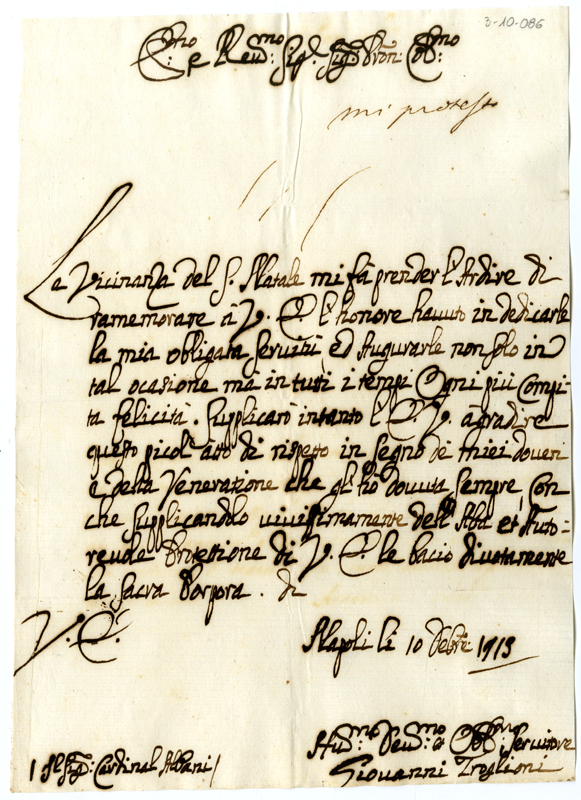 3-10-086
Em.mo e Reu.mo Sig.r Sig.r Pron: Col.mo
mi protesto
La Vicinanza del S. Natale mi fà prender l'Ardire di
ramemorare à V. E. l'honore hauuto in dedicarle
la mia obligata seruitù ed Augurarle non solo in
tal ocasione mà in tutti i tempi Ogni più Compi
ta felicità. Supplicarò intanto l'E. V. àgradire
questo picol' atto di rispetto in segno de miei doueri
e della Veneratione che gl'hò douuta sempre, Con
che supplicandolo uiuissimamente dell'Alta et Auto=
reuole Protettione di V. E. le bacio diuotamente
la Sacra Porpora. di
V. E.
Napoli li 10 Xbre 1713
Hu.mo Deu.mo et Obb.mo Seruitore
Giouanni Troglioni
/ Al Sig.r Cardinal Albani /